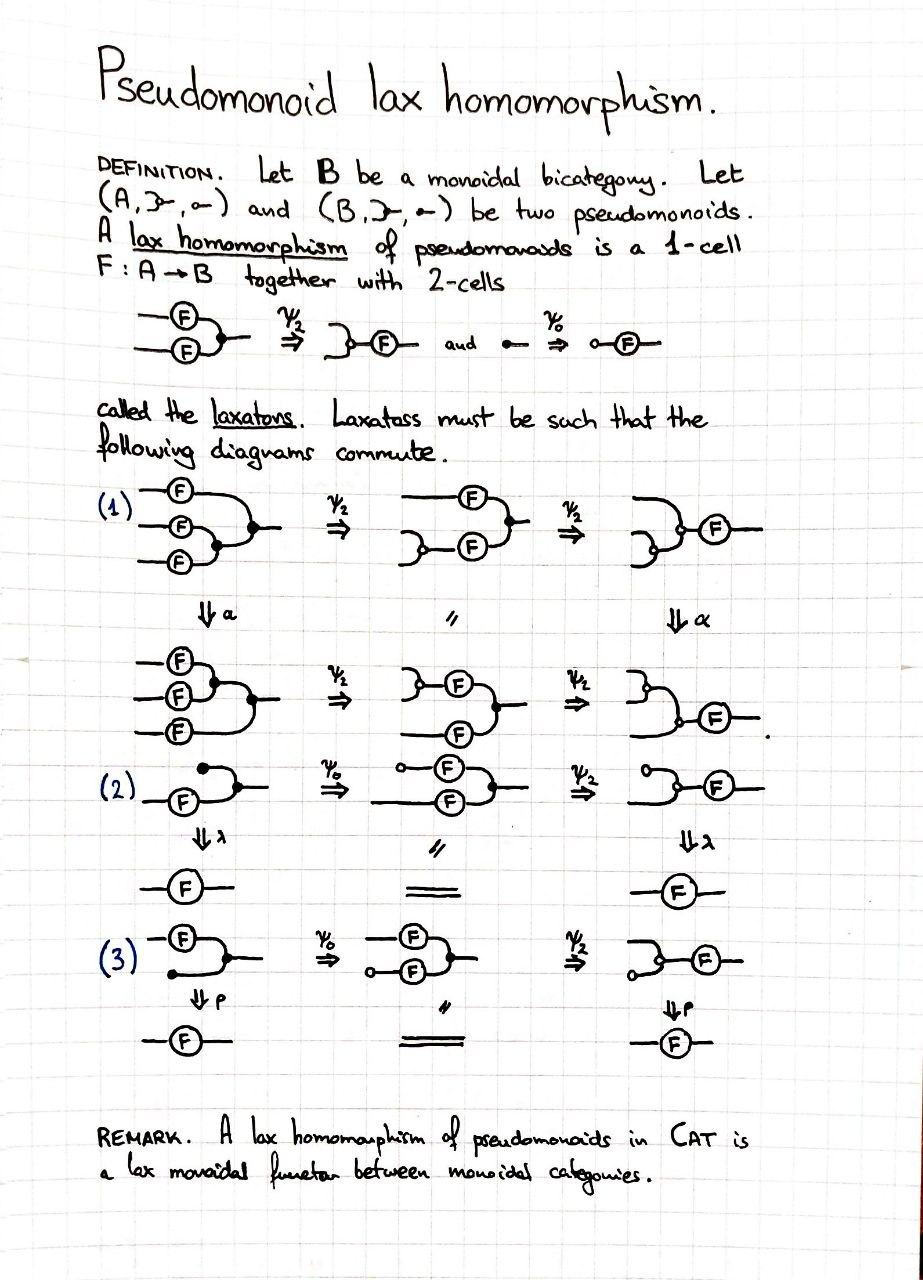 Pseudomonoid lax homomorphism.
DEFINITION. Let B be a monoidal bicategory. Let
(A, , ) and (B, , ) be two pseudomonoids.
A lax homomorphism of pseudomonoids is a 1-cell
F : A → B together with 2-cells
F F ψ₂ ⇒ F and ψ₀ ⇒ F
called the laxators. Laxators must be such that the
following diagrams commute.
(1) F F F ψ₂ ⇒ F F ψ₂ ⇒ F
⇓ a = ⇓ α
F F F ψ₂ ⇒ F F ψ₂ ⇒ F .
(2) F ψ₀ ⇒ F F ψ₂ ⇒ F
⇓ λ = ⇓ λ
F F
(3) F ψ₀ ⇒ F F ψ₂ ⇒ F
⇓ ρ = ⇓ ρ
F F
REMARK. A lax homomorphism of pseudomonoids in CAT is
a lax monoidal functor between monoidal categories.